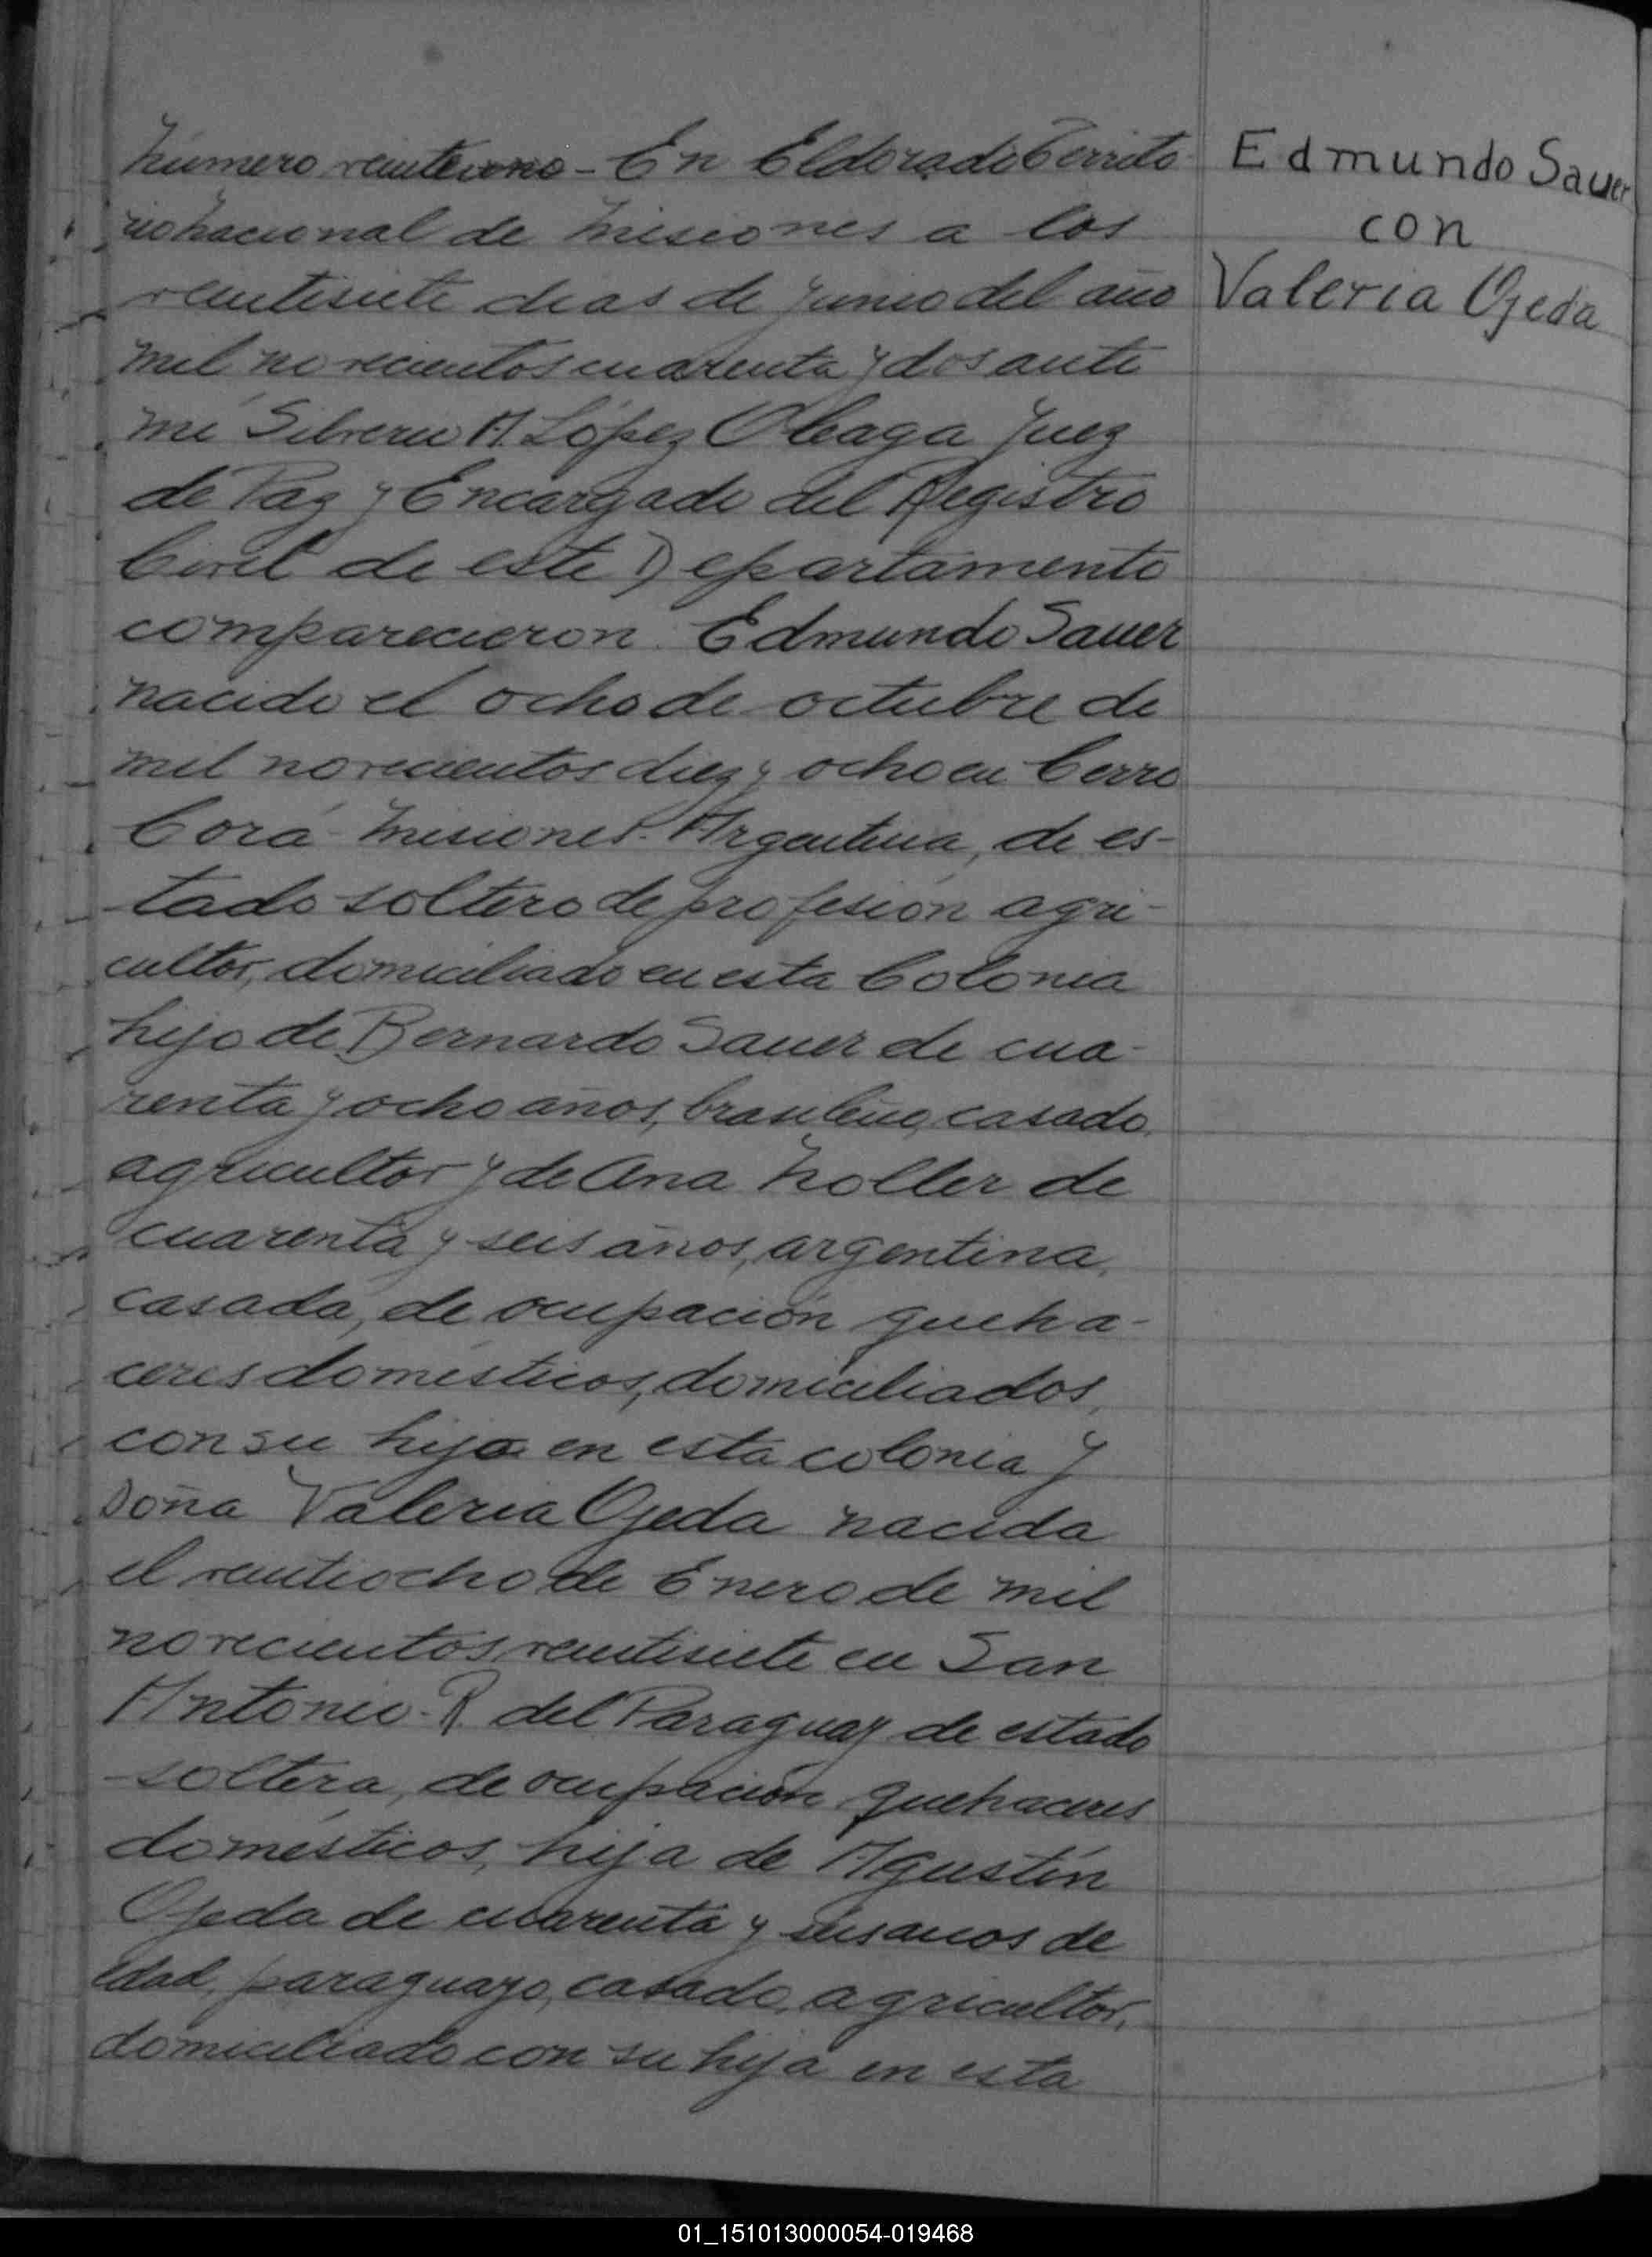 Número veintiuno - En Eldorado Territo-
rio Nacional de Misiones a los
veintisiete dias de junio del año
mil novecientos cuarenta y dos ante
mi López Oleaga Juez
de Paz y Encargado del Registro
Civil de este Departamento
comparecieron Edmundo Sauer
nacido el ocho de octubre de
mil novecientos diez y ocho en Cerro
Corá - Misiones - Argentina, de es-
tado soltero de profesión agri-
cultor, domiciliado en esta Colonia
hijo de Bernardo Sauer de cua-
renta y ocho años, brasileño, casado,
agricultor y de Ana Noller de
cuarenta y seis años, argentina,
casada, de ocupación queha-
ceres domésticos, domiciliados,
con su hijo en esta colonia y
Doña Valeria Ojeda nacida
el veintiocho de Enero de mil
novecientos veintisiete en San
Antonio - R. del Paraguay de estado
soltera, de ocupación quehaceres
domésticos, hija de Agustín
Ojeda de cuarenta y seis años de
edad, paraguayo, casado, agricultor,
domiciliado con su hija en esta
Edmundo Sauer
con
Valeria Ojeda
01_151013000054-019468